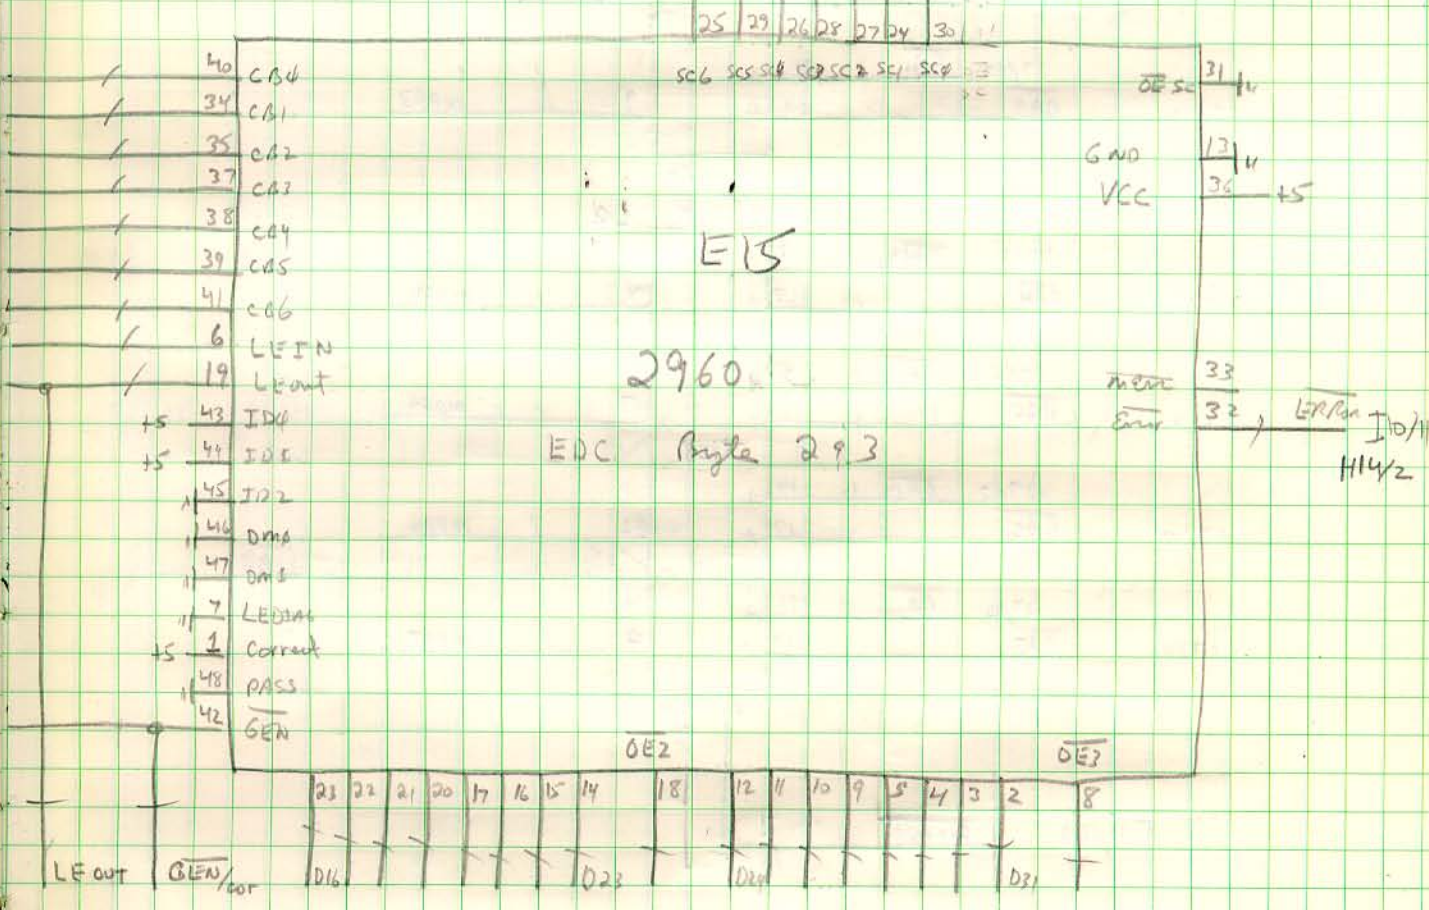 25 29 26 28 27 24 30
SC6 SC5 SC4 SC3 SC2 SC1 SC0
40 CB0
34 CB1
35 CB2
37 CB3
38 CB4
39 CB5
41 CB6
6 LEIN
19 LEout
+5 43 ID0
+5 44 ID1
45 ID2
46 DM0
47 DM1
7 LEDIAG
+5 1 Correct
48 PASS
42 GEN
31 OE SC
13 GND
36 VCC +5
E15
2960
EDC Byte 2 & 3
33 merr
32 Error LERRor I10/11
H14/2
OE2 OE3
23 22 21 20 17 16 15 14 18 12 11 10 9 5 4 3 2 8
LE OUT GEN/cor D16 D23 D24 D31